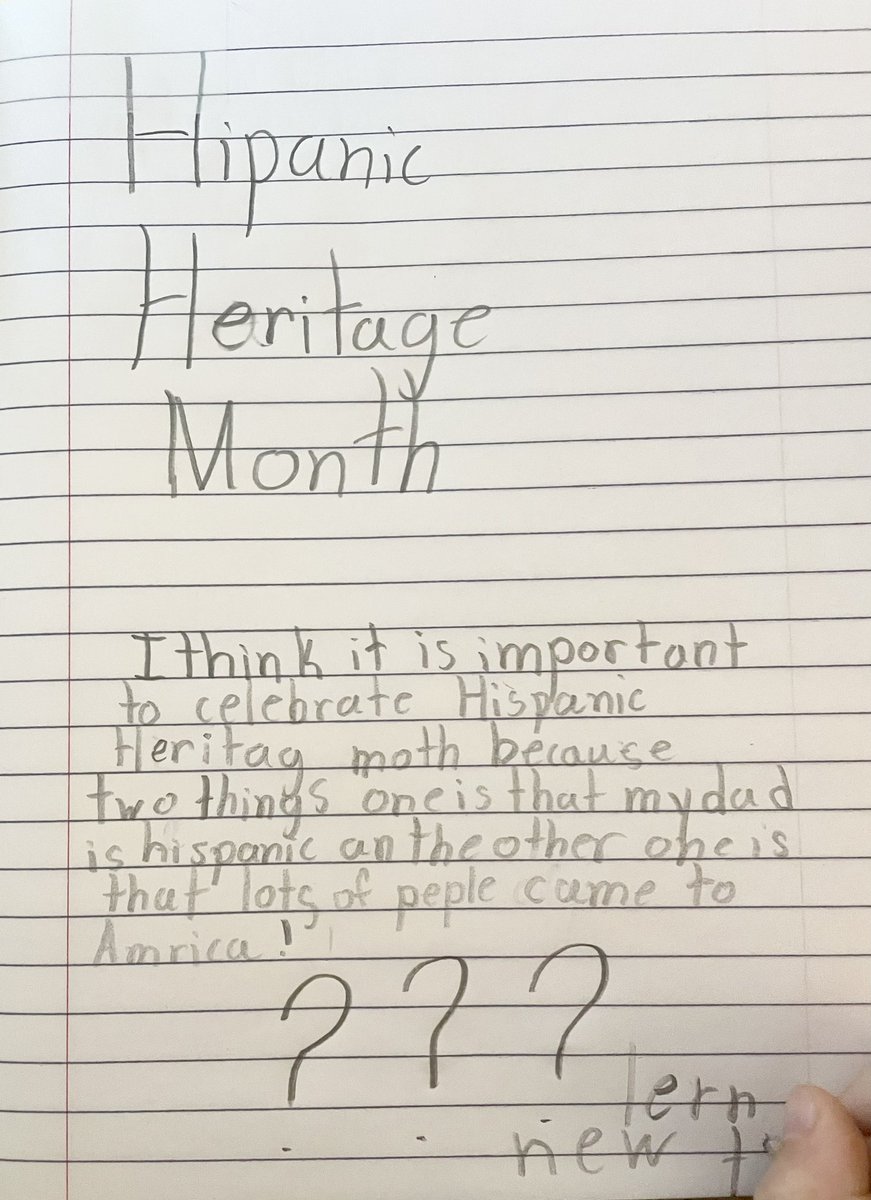 Hipanic
Heritage
Month
I think it is important
to celebrate Hispanic
Heritag moth because
two things one is that my dad
is hispanic an the other one is
that lots of peple came to
Amrica!
? ? ?
lern
new